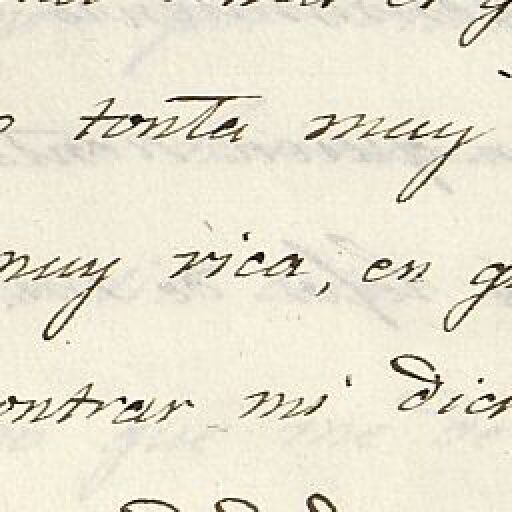 tonta muy
muy rica, en
ontrar mi dich